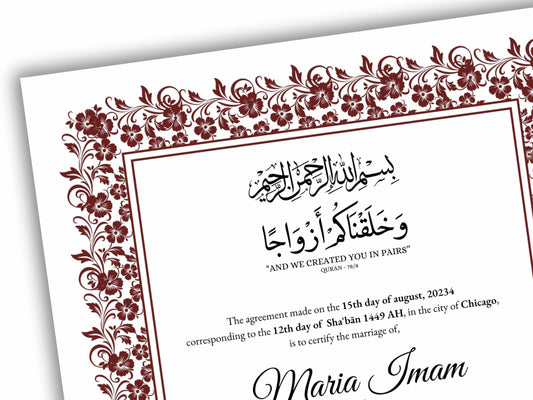 بِسْمِ اللهِ الرَّحْمٰنِ الرَّحِيْمِ
وَخَلَقْنَاكُمْ أَزْوَاجًا
"AND WE CREATED YOU IN PAIRS"
QURAN - 78/8
The agreement made on the 15th day of august, 20234
corresponding to the 12th day of Sha'bān 1449 AH, in the city of Chicago,
is to certify the marriage of,
Maria Imam